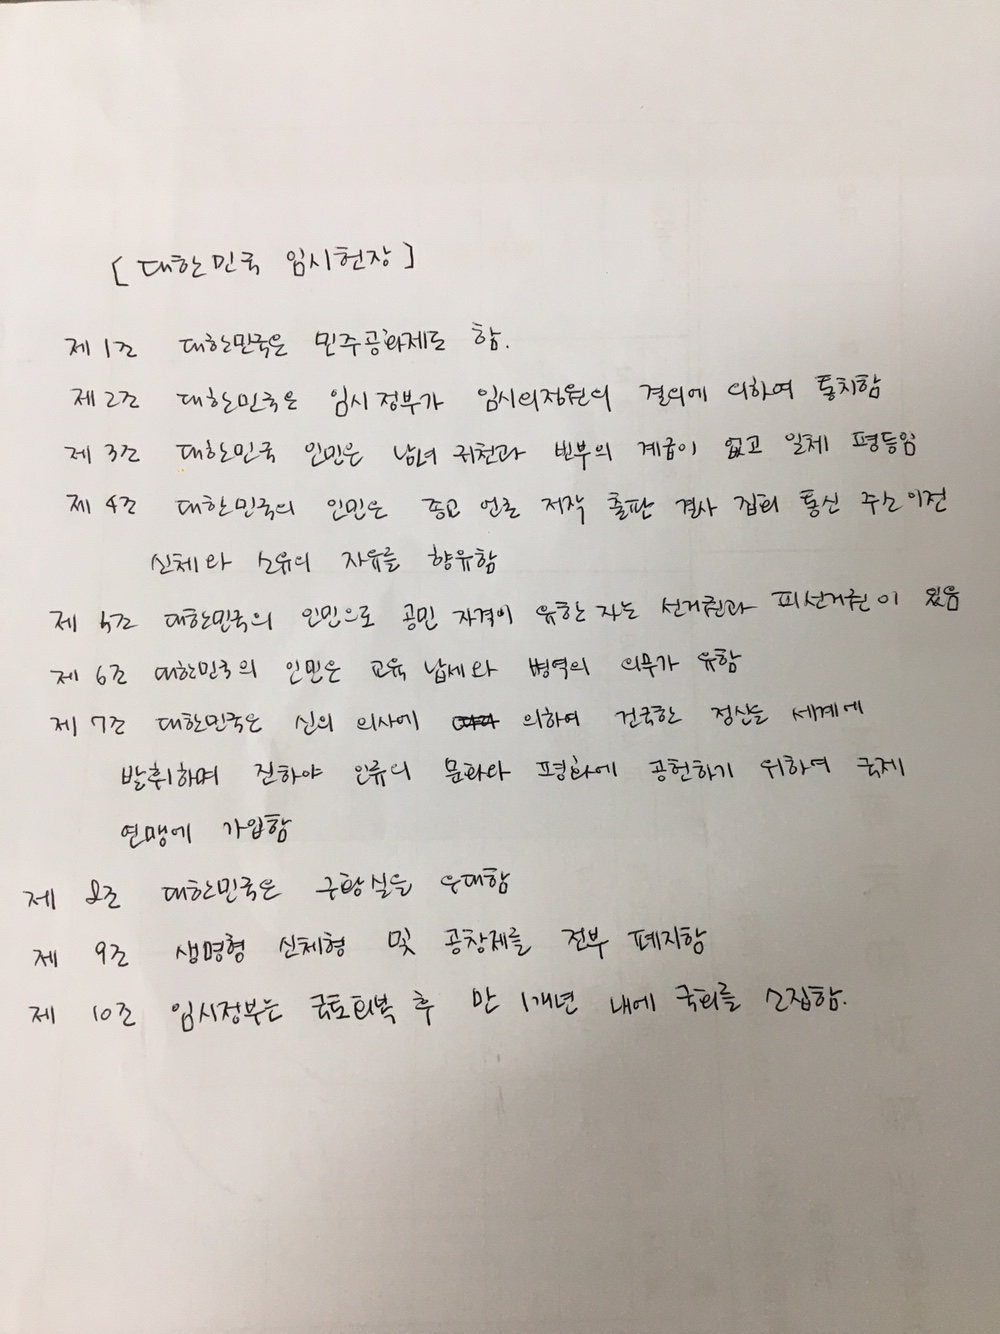 [대한민국 임시헌장]
제 1조 대한민국은 민주공화제로 함.
제 2조 대한민국은 임시정부가 임시의정원의 결의에 의하여 통치함
제 3조 대한민국 인민은 남녀 귀천과 빈부의 계급이 없고 일체 평등임
제 4조 대한민국의 인민은 종교 언론 저작 출판 결사 집회 통신 주소이전
신체와 소유의 자유를 향유함
제 5조 대한민국의 인민으로 공민 자격이 유한 자는 선거권과 피선거권이 있음
제 6조 대한민국의 인민은 교육 납세와 병역의 의무가 유함
제 7조 대한민국은 신의 의사에 의하여 건국한 정신을 세계에
발휘하며 진하야 인류의 문화와 평화에 공헌하기 위하여 국제
연맹에 가입함
제 8조 대한민국은 구황실을 우대함
제 9조 생명형 신체형 및 공창제를 전부 폐지함
제 10조 임시정부는 국토회복 후 만 1개년 내에 국회를 소집함.